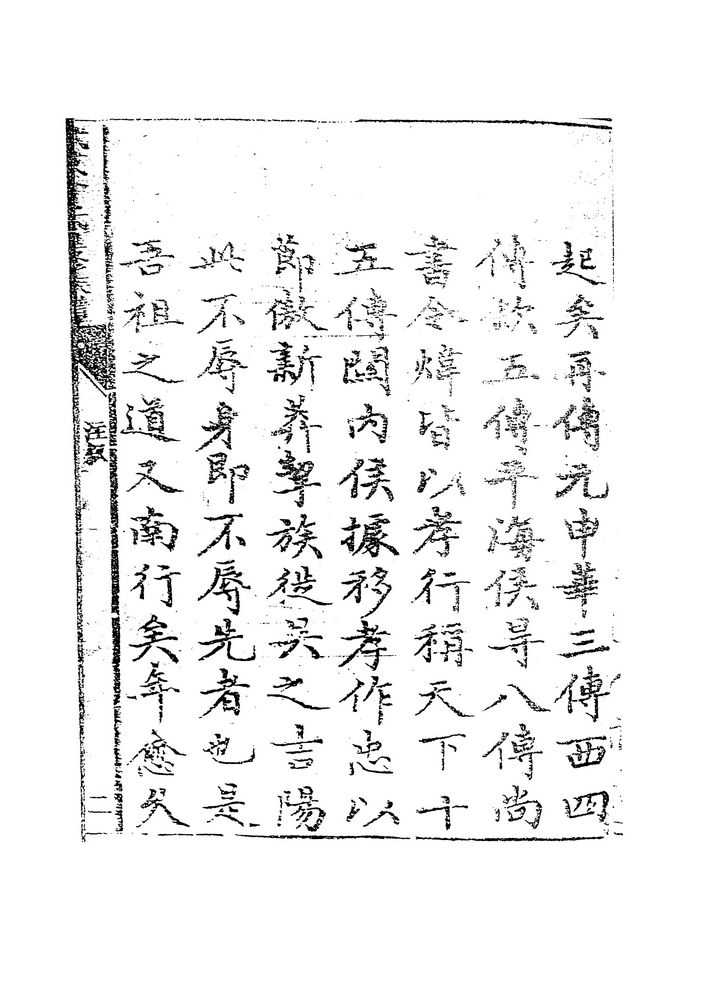 起矣再傳元申華三傳西四
傳欽五傳平海侯㝵八傳尚
書令煒皆以孝行稱天下十
五傳關內侯據移孝作忠以
節傲新莽挈族徙吳之吉陽
此不辱身即不辱先者也是
吾祖之道又南行矣年愈久
汪敘
二